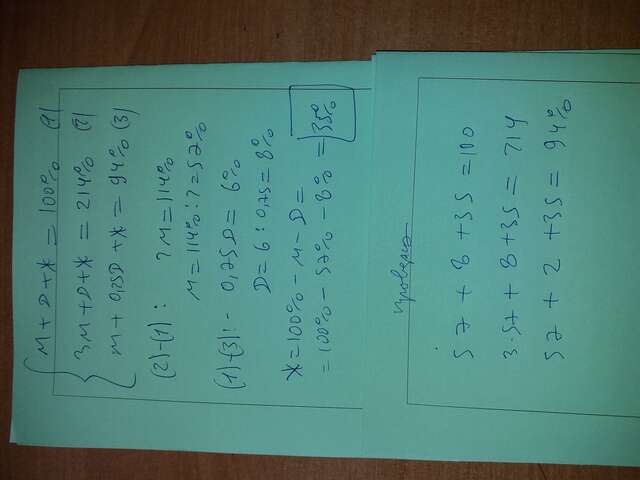 М + Д + Ж = 100% (1)
3М + Д + Ж = 214% (2)
М + 0,25Д + Ж = 94% (3)
(2)-(1): 2М = 114%
М = 114% : 2 = 57%
(1)-(3): - 0,75Д = 6%
Д = 6 : 0,75 = 8%
Ж = 100% - М - Д =
= 100% - 57% - 8% = 35%
проверка
57 + 8 + 35 = 100
3·57 + 8 + 35 = 214
57 + 2 + 35 = 94%